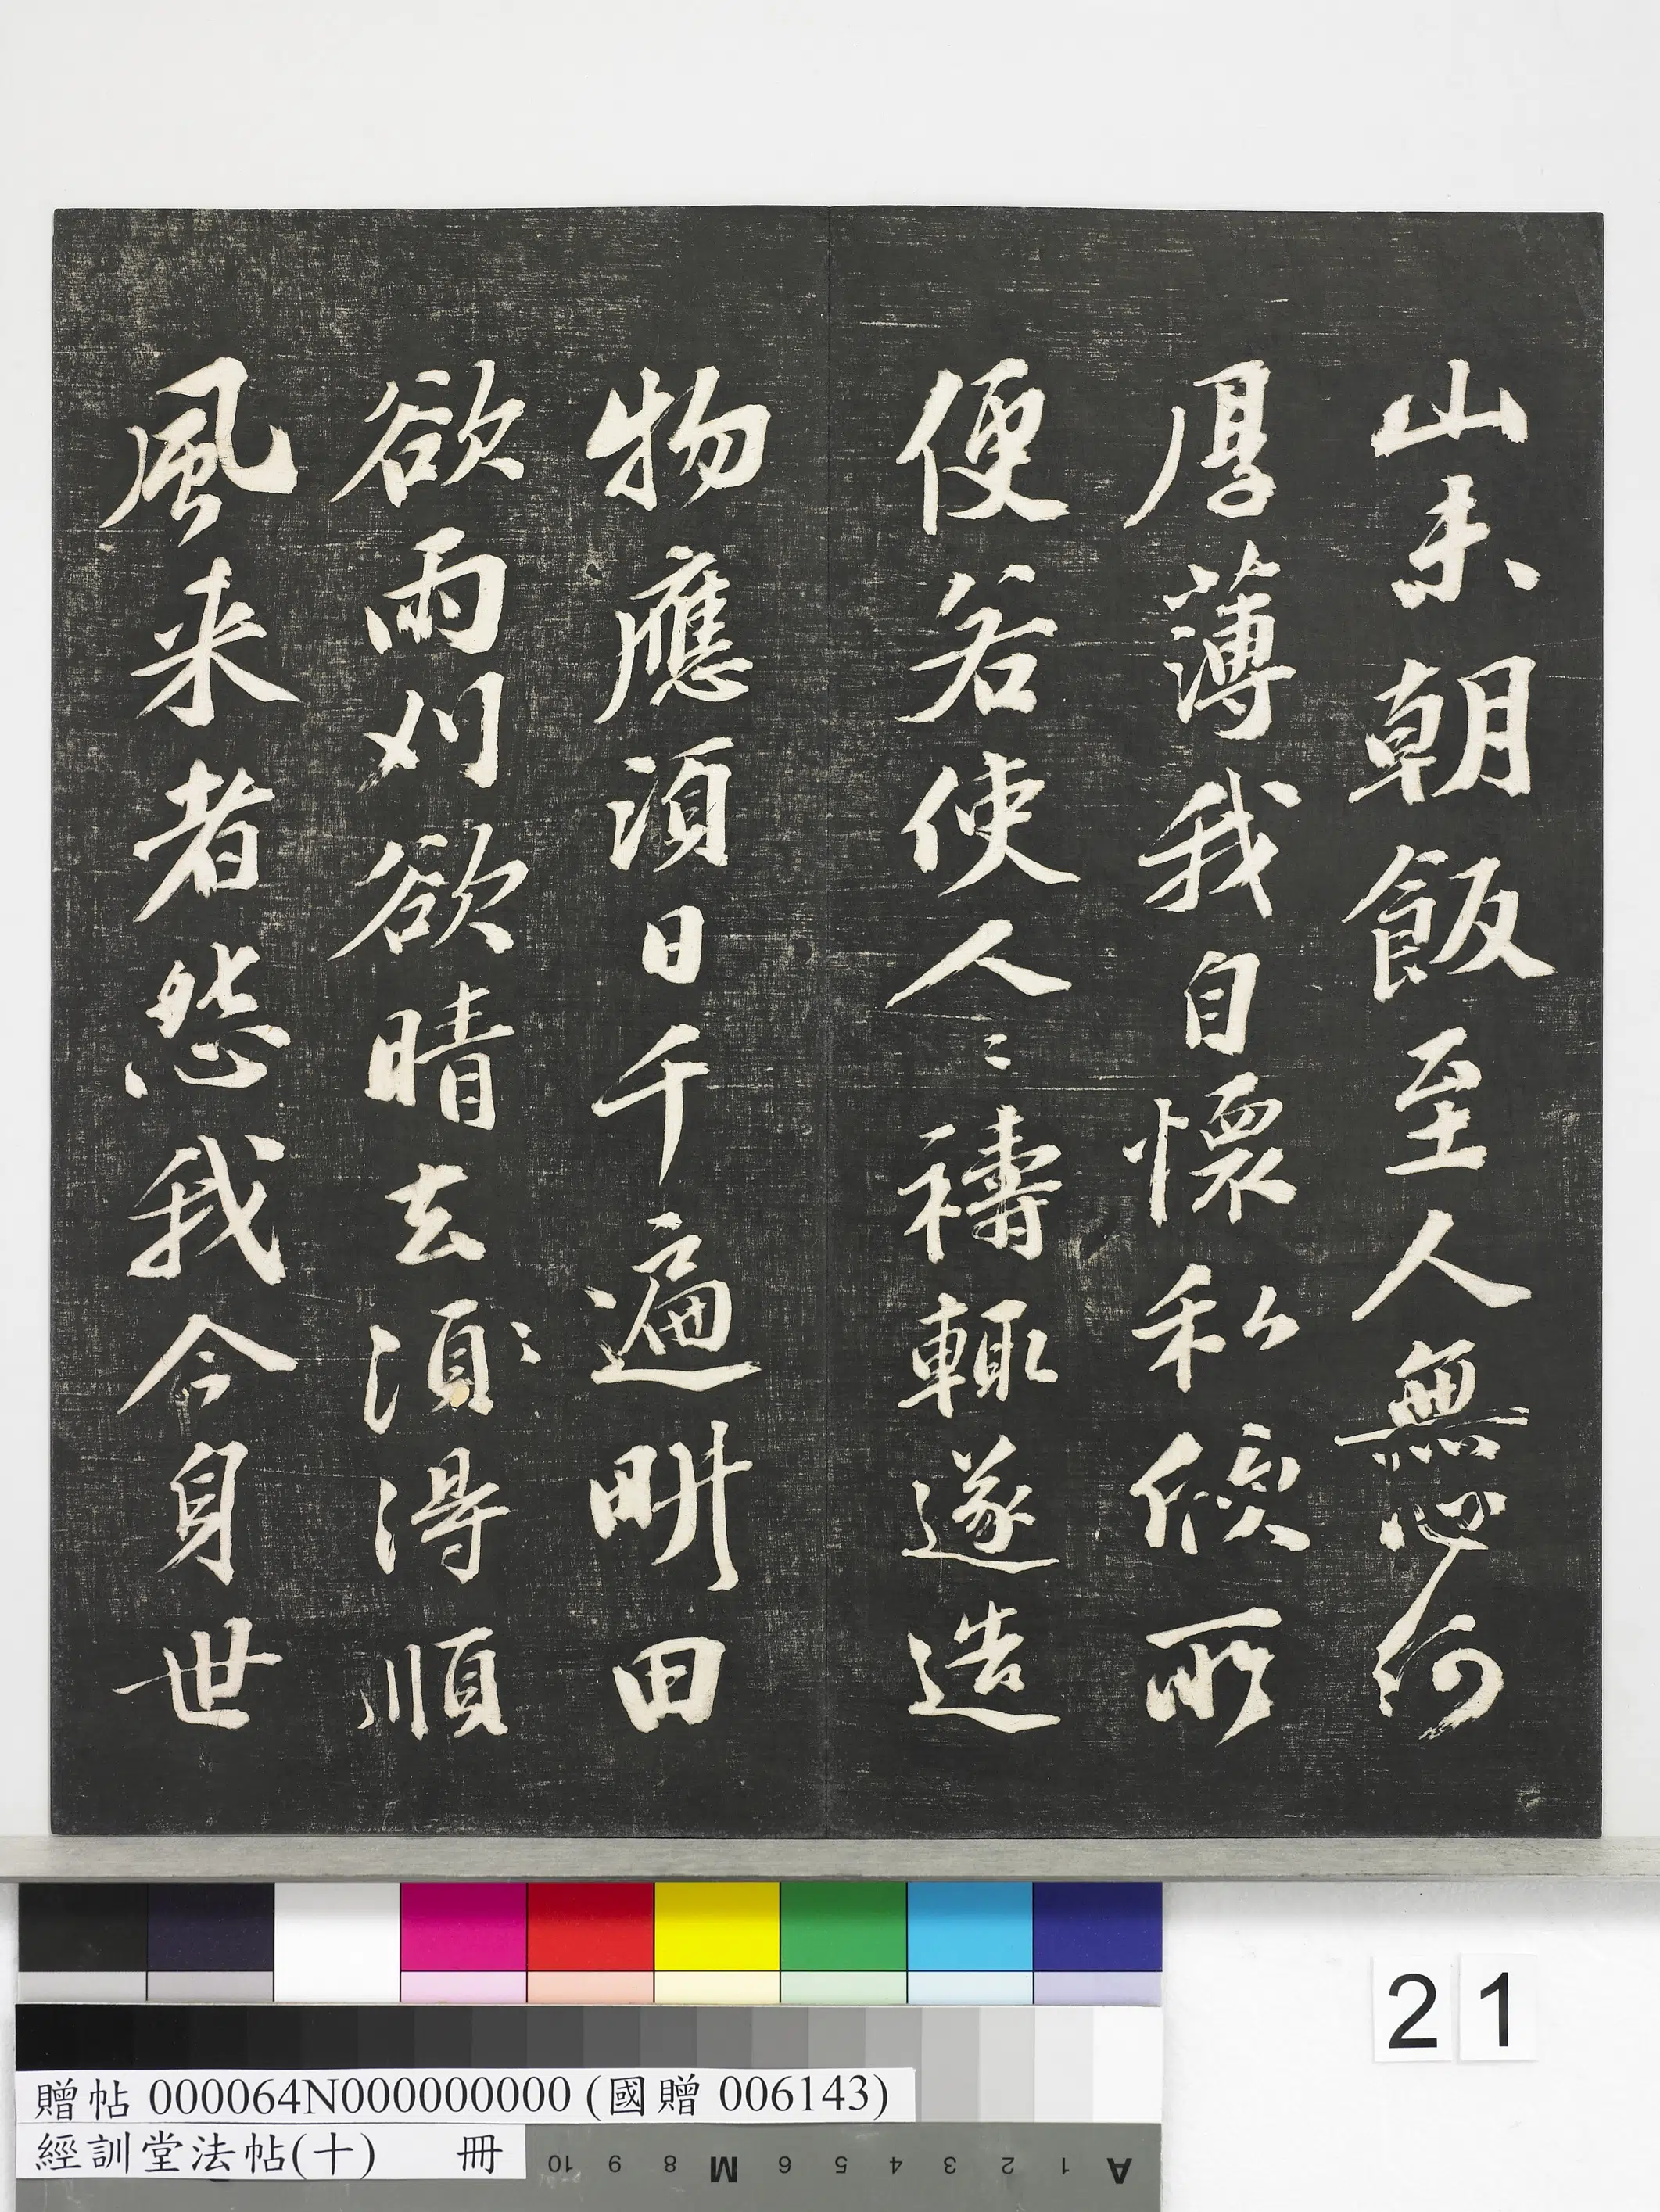 山未朝飯至人無心何
厚薄我自懷私倐所
便若使人〻禱輒遂造
物應須日千遍畊田
欲雨刈欲晴去湏〻得順
風来者怨我今身世
21
贈帖 000064N000000000 (國贈 006143)
經訓堂法帖(十) 冊
10 9 8 M 6 5 4 3 2 1 A